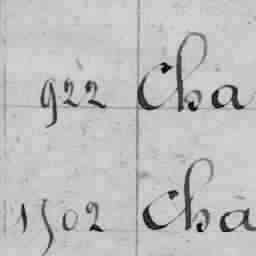 922 Cha
1502 Cha